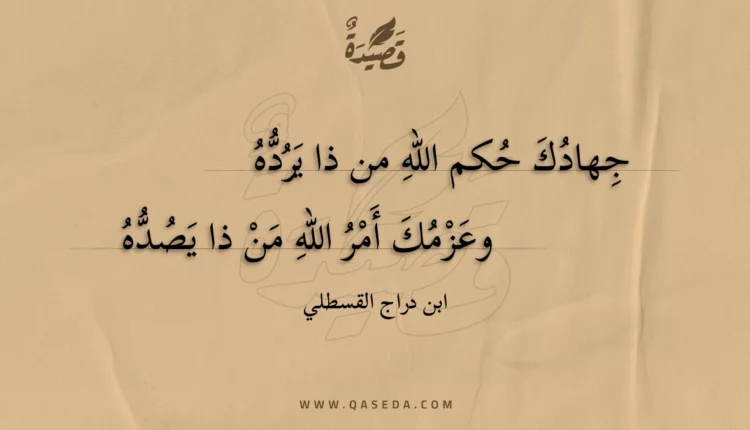 قَصِيدَةٌ
جِهادُكَ حُكم اللهِ من ذا يَرُدُّهُ
وعَزْمُكَ أَمْرُ اللهِ مَنْ ذا يَصُدُّهُ
ابن دراج القسطلي
WWW.QASEDA.COM